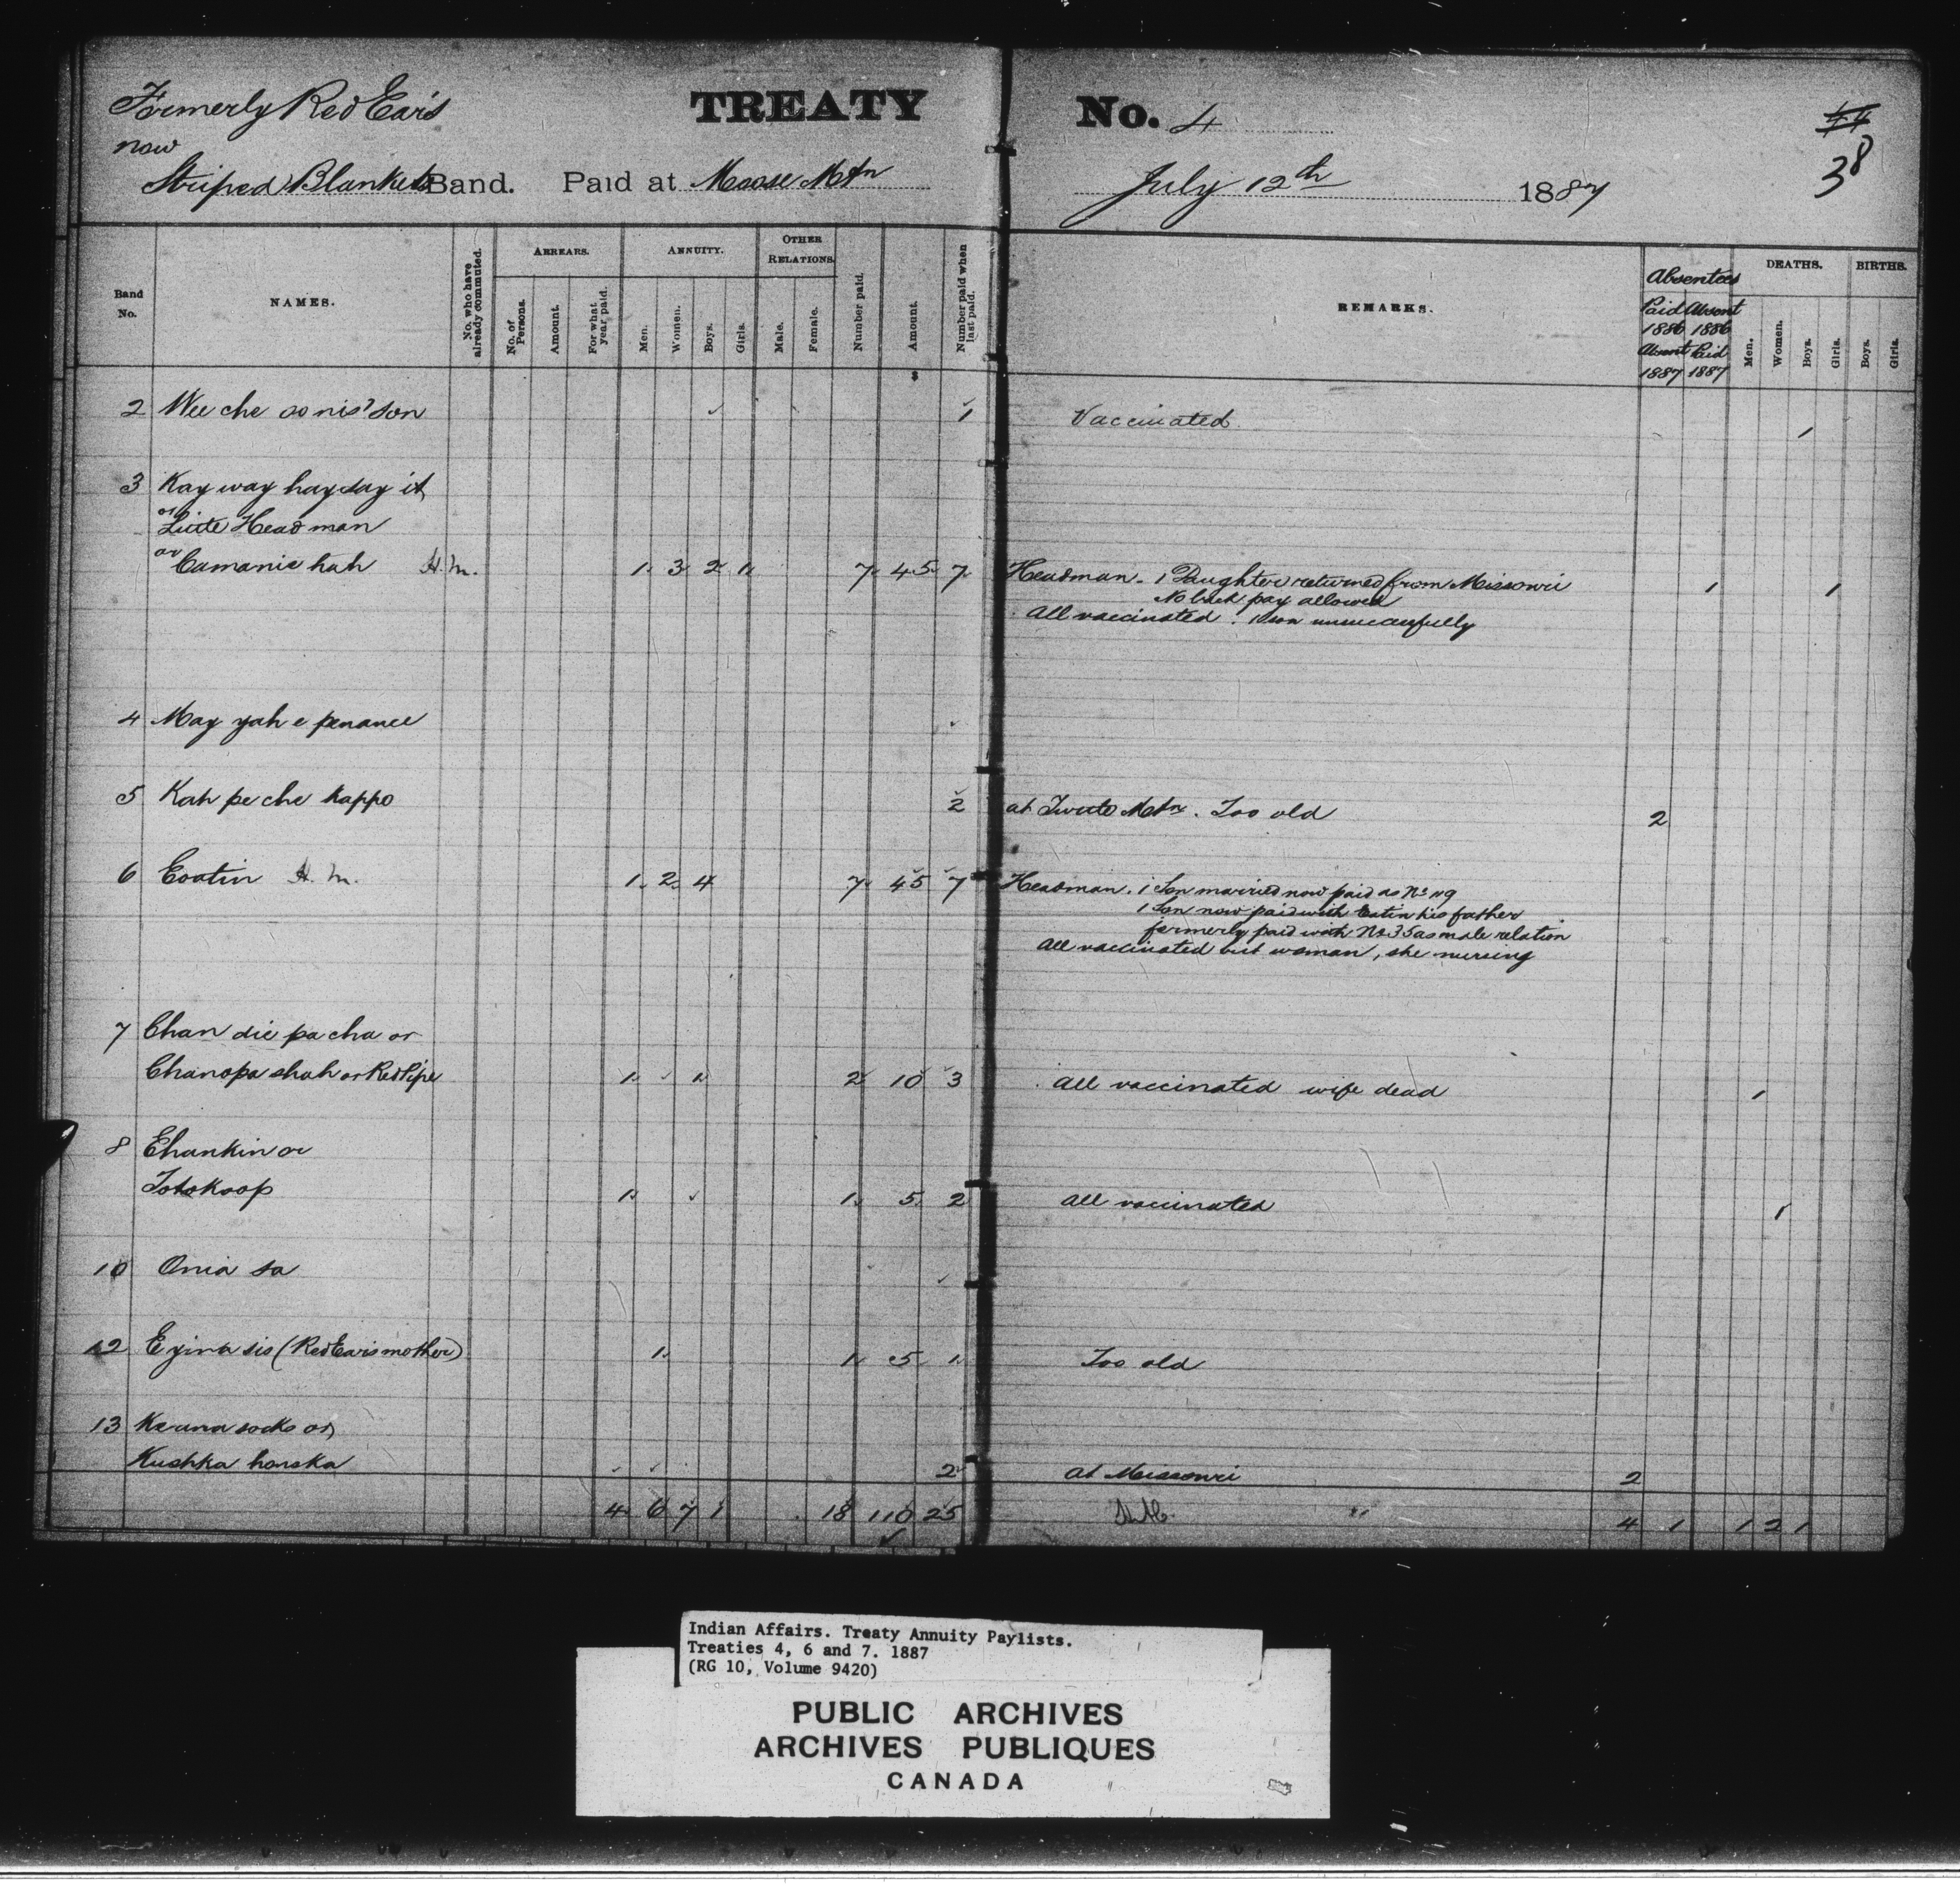 Formerly Red Ear's
now
Striped Blankets Band. Paid at Moose Mtn
TREATY No. 4
July 12th 1887
44
38
Band No.
NAMES.
No. who have already commuted.
ARREARS.
No. of Persons.
Amount.
For what year paid.
ANNUITY.
Men.
Women.
Boys.
Girls.
OTHER RELATIONS.
Male.
Female.
Number paid.
Amount.
Number paid when last paid.
REMARKS.
Absentees
Paid 1886 Absent 1887
Absent 1886 Paid 1887
DEATHS.
Men.
Women.
Boys.
Girls.
BIRTHS.
Boys.
Girls.
$
2 Wee che oo nis' son 1 Vaccinated 1
3 Kay way hay day it
or Little Head man
or Camanie hah H.M. 1 3 2 1 7 45 7 Headman. 1 Daughter returned from Missouri 1 1
No back pay allowed
All vaccinated. 1 son unsuccessfully
4 May yah e penance
5 Kah pe che kappo 2 at Turtle Mtn. Too old 2
6 Eoatin H.M. 1 2 4 7 45 7 Headman. 1 Son married now paid as No 49
1 Son now paid with Eatin his father
formerly paid with No 35 as male relation
All vaccinated but woman, she nursing
7 Chan die pa cha or
Chanopa shah or Red Pipe 1 1 2 10 3 All vaccinated wife dead 1
8 Ehankin or
Totokoop 1 1 5 2 All vaccinated 1
10 Onia sa
12 Eyina sis (Red Ears mother) 1 1 5 1 Too old
13 Ke una socks or
Kushka honska 2 at Missouri 2
4 6 7 1 18 110 25 4 1 1 2 1
Indian Affairs. Treaty Annuity Paylists.
Treaties 4, 6 and 7. 1887
(RG 10, Volume 9420)
PUBLIC ARCHIVES
ARCHIVES PUBLIQUES
CANADA